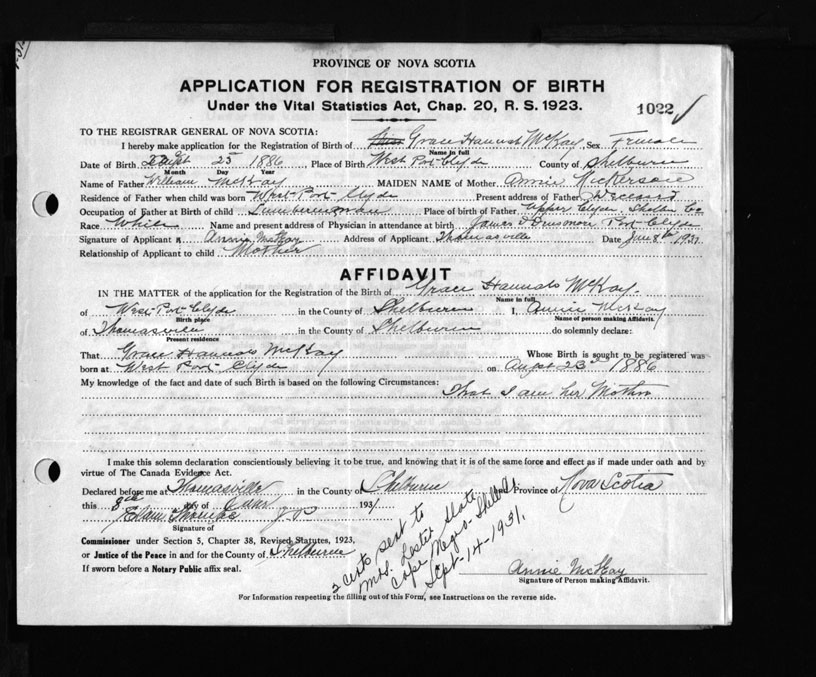 PROVINCE OF NOVA SCOTIA
APPLICATION FOR REGISTRATION OF BIRTH
Under the Vital Statistics Act, Chap. 20, R. S. 1923.
1022
TO THE REGISTRAR GENERAL OF NOVA SCOTIA:
I hereby make application for the Registration of Birth of Grace Hannah McKay Sex Female
Name in full
Date of Birth August 23 1886 Place of Birth West Port Clyde County of Shelburne
Month Day Year
Name of Father William McKay MAIDEN NAME of Mother Annie Nickerson
Residence of Father when child was born West Port Clyde Present address of Father Deceased
Occupation of Father at Birth of child Lumberman Place of birth of Father Upper Clyde Shelb Co
Race White Name and present address of Physician in attendance at birth James Port Clyde
Signature of Applicant x Annie McKay Address of Applicant Thomasville Date 8th 1931
Relationship of Applicant to child Mother
AFFIDAVIT
IN THE MATTER of the application for the Registration of the Birth of Grace Hannah McKay
Name in full
of West Port Clyde in the County of Shelburne I, Annie McKay
Birth place Name of person making Affidavit.
of Thomasville in the County of Shelburne do solemnly declare:
Present residence
That Grace Hannah McKay Whose Birth is sought to be registered was
born at West Port Clyde on August 23 1886
My knowledge of the fact and date of such Birth is based on the following Circumstances: That I am her Mother
I make this solemn declaration conscientiously believing it to be true, and knowing that it is of the same force and effect as if made under oath and by
virtue of The Canada Evidence Act.
Declared before me at Thomasville in the County of Shelburne and Province of Nova Scotia
this 8th day of June 1931
Thomas J.P.
Signature of
Commissioner under Section 5, Chapter 38, Revised Statutes, 1923,
or Justice of the Peace in and for the County of Shelburne
If sworn before a Notary Public affix seal.
2 certs sent to
Mrs. Lester Slate
Cape Negro - Shelb Co.
Sept-14-1931.
Annie McKay
Signature of Person making Affidavit.
For Information respecting the filling out of this Form, see Instructions on the reverse side.